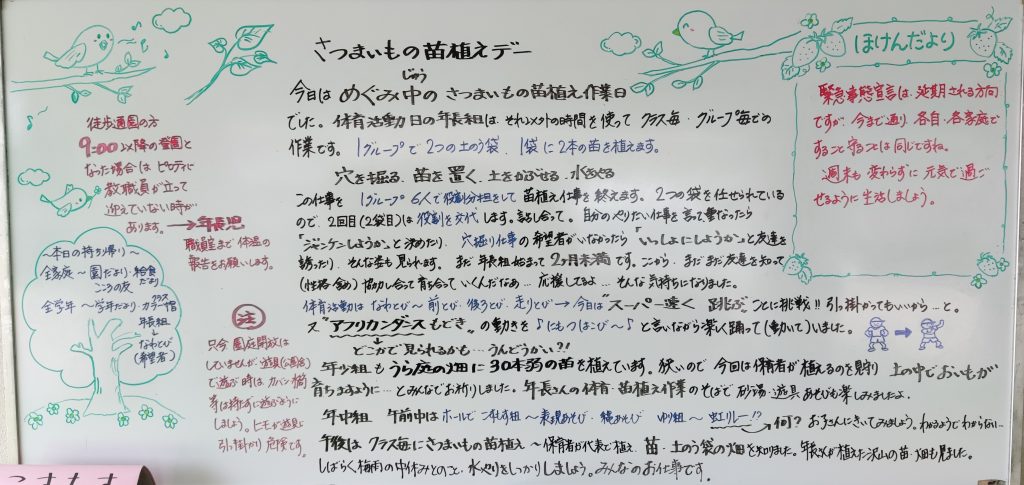 さつまいもの苗植えデー
じゅう
今日は めぐみ中の さつまいもの苗植え作業日
でした。体育活動日の年長組は それ以外の時間を使って クラス毎・グループ毎での
作業です。1グループで 2つの土のう袋、1袋に2本の苗を植えます。
穴を掘る 苗を置く 土をかぶせる 水をやる
この仕事を 1グループ6人で役割分担をして 苗植え仕事を終えます。2つの袋を任せられている
ので、2回目(2袋目)は役割を交代します。話し合って。自分のやりたい仕事を言て重なったら
「ジャンケンしようか」と決めたり、穴掘り仕事の希望者がいなかったら「いっしょにしようか」と友達を
誘ったり、そんな姿も見られます。まだ年長組始まって2ヶ月未満です。これから、まだまだ友達を知って
(性格含め)協力し合って育ち合っていくんだなぁ…応援してるよ…そんな気持ちになりました。
体育活動は なわとび〜 前とび・後ろとび、走りとび→今日は"スーパー速く 跳ぶぶ"ことに挑戦!! 引っ掛かってもいいから…と。
又"アフリカンダンスもどき"の動きを♪にもつはこび〜♪と言いながら楽しく踊って(動いて)いました。
→どこかで見られるかも…うんどうかい?!
年少組も うら庭の畑に30本弱の苗を植えています。狭いので 今回は保育者が植えるのを見守り 土の中でおいもが
育ちますように…とみんなでお祈りしました。年長さんの体育・苗植え作業のそばで 砂場・遊具あそびも楽しみましたよ。
年中組 午前中はホールで こすもす組〜表現あそび・縄あそび ゆり組〜虹リレー!?→何? お子さんにきいてみましょう。わかるようでわからない…
午後は クラス毎にさつまいもの苗植え〜保育者が代表で植え 苗・土のう袋の畑を知りました。年長さんが植えた沢山の苗・畑も見ました。
しばらく梅雨の中休みとのこと、水やりをしっかりしましょう。みんなのお仕事です。
徒歩通園の方
9:00以降の登園と
なった場合は ピロティに
教職員が立って
迎えていない時が
あります。→年長児
職員室まで 体温の
報告をお願いします。
〜本日の持ち帰り〜
全家庭〜園だより・給食だより
こころの友
全学年〜学年だより・カラー帽
年長組
↓
なわとび
(希望者)
注
只今 園庭開放は
していませんが、遊具(公園含)
で遊ぶ時は カバン・水筒
等は持たずに遊ぶように
しましょう。ヒモが遊具に
引っ掛かり 危険です。
ほけんだより
緊急事態宣言は、延期される方向
ですが、今まで通り、各自・各家庭で
すること守ることは同じですね。
週末も 変わらずに 元気で過ご
せるように生活しましょう。
こすもす